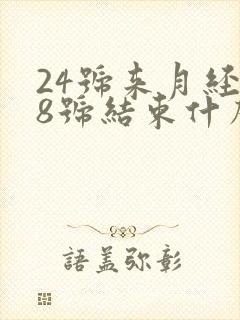 24號來月經
8號結束什
語蓋弥彰